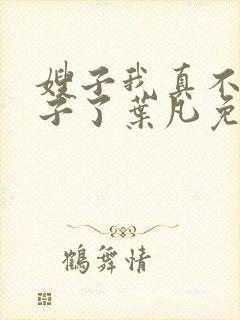 嫂子我真不
子了葉凡免
鶴舞情